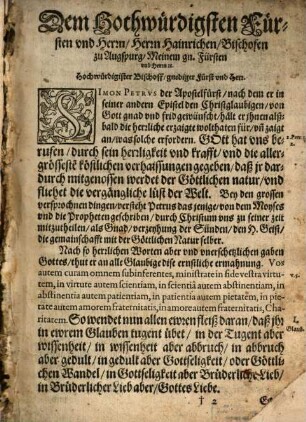 Dem Hochwürdigsten Für-
sten vnd Herrn / Herrn Hainrichen / Bischofen
zu Augspurg / Meinem gn. Fürsten
vnd Herrn ꝛc.
Hochwürdigister Bischoff / gnediger Fürst vnd Herr.
SIMON PETRVS der Apostelfürst / nach dem er in
seiner andern Epistel den Christglaubigen / von
Gott gnad vnd frid gewünsch / hält er jhnen alß-
bald die herrliche erzaigte wolthaten für / vñ zaigt
an / was solche erfordern. GOtt hat vns be-
rufen / durch sein herrligkeit vnd krafft / vnd die aller-
grössest vnd köstlichen verhaissungen gegeben / daß jr dar-
durch mitgenossen werdet der Göttlichen natur / vnd
fliehet die vergängliche lüst der Welt. Bey den grossen
versprochnen dingen / verstehe Petrus das jenige / so von Moyses
vnd die Propheten geschriben / durch Christum vns zu seiner zeit
mitzutheilen / als Gnad / verzeyhung der Sünden / den H. Geist /
die gemainschafft mit der Göttlichen Natur selber.
Nach so herrlichen Worten aber vnd vnerschetzlichen gaben
Gottes / thut er an alle Glaubige dise ernstliche ermahnung. Vos
autem curam omnem subinferentes, ministrate in fide vestra virtu-
tem, in virtute autem scientiam, in scientiâ autem abstinentiam, in
abstinentia autem patientiam, in patientia autem pietatẽ, in pie-
tate autem amorem fraternitatis, in amore autem fraternitatis, Cha-
ritatem. So wendet nun allen ewren fleiß daran / daß jhr
in ewrem Glauben tugent übet / in der Tugent aber
wissenheit / in wissenheit aber abbruch / in abbruch
aber gedult / in gedult aber Gottseligkeit / oder Göttli-
chen Wandel / in Gottseligkeit aber Brüderliche Lieb /
in Brüderlicher Lieb aber / Gottes Liebe.
† 2